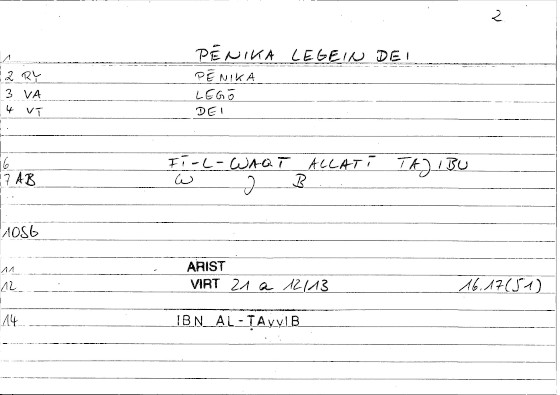 2
1 PĒNIKA LEGEIN DEI
2 RY PĒNIKA
3 VA LEGŌ
4 VT DEI
6 FĪ-L-WAQT ALLATĪ TAJIBU
7 AB W J B
10 SG
11 ARIST
12 VIRT 21 a 12/13 16.17(51)
14 IBN AL-ṬAyyIB